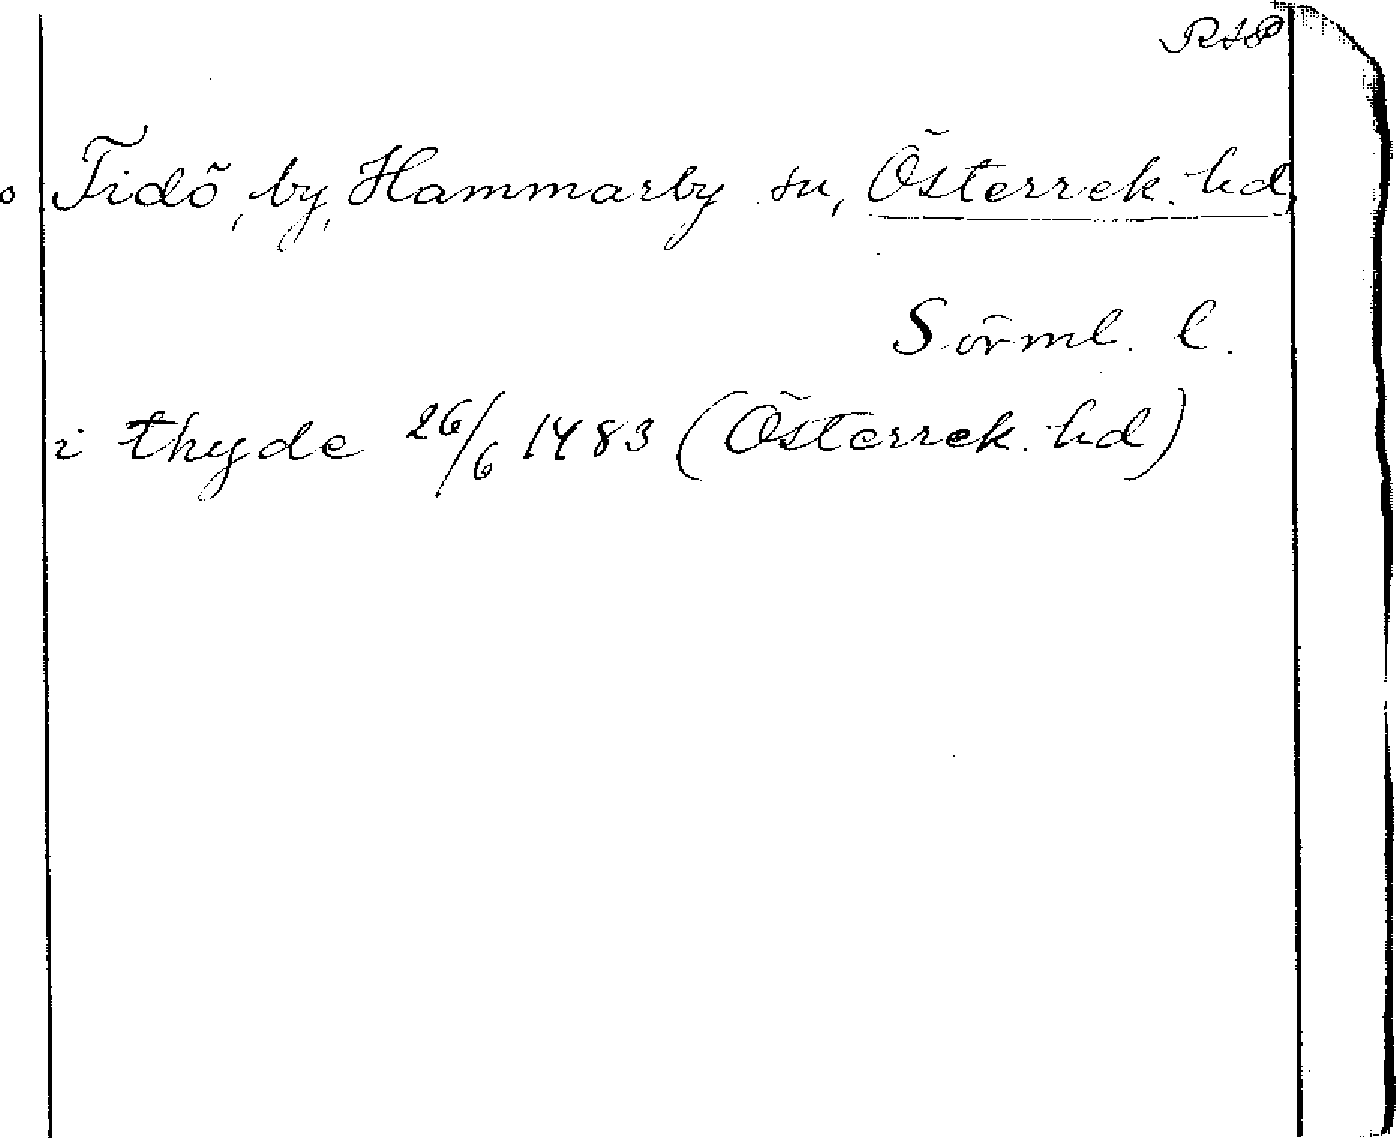 RAP
Tidö, by, Hammarby sn, Österrek. hd,
Sörml. l.
i thyde 26/6 1483 (Österrek. hd)